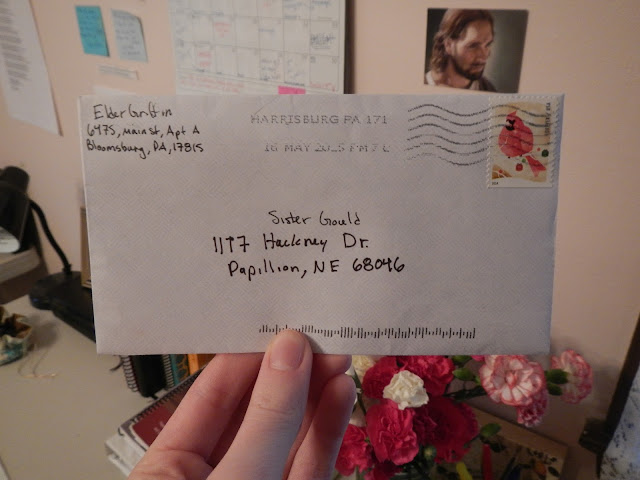 Elder Griffin
647 S, Main St, Apt A
Bloomsburg, PA, 17815
HARRISBURG PA 171
16 MAY 2015 PM 7 L
Sister Gould
1117 Hackney Dr.
Papillion, NE 68046